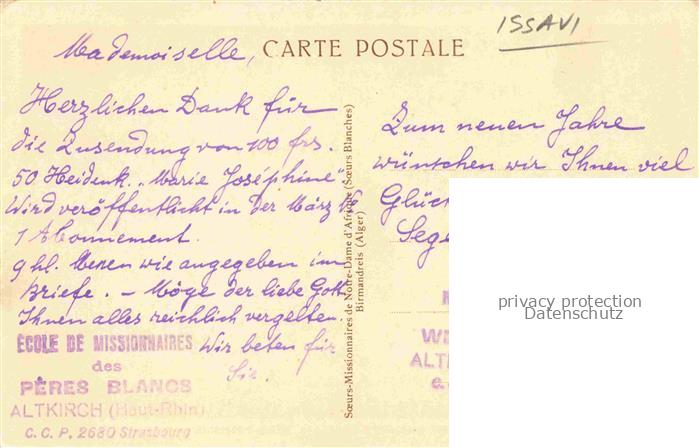 ISSAVI
CARTE POSTALE
Mademoiselle,
Herzlichen Dank für
die Zusendung von 100 frs.
50 Heidenk. "Marie Joséphine".
Wird veröffentlicht in der März
1 Abonnement.
9 hl. Messen wie angegeben im
Briefe. – Möge der liebe Gott
Ihnen alles reichlich vergelten.
Wir beten für
Sie.
ÉCOLE DE MISSIONNAIRES
des
PÈRES BLANCS
ALTKIRCH (Haut-Rhin)
C. C. P. 2680 Strasbourg
Sœurs-Missionnaires de Notre-Dame d'Afrique (Sœurs Blanches)
Birmandreis (Alger)
Zum neuen Jahre
wünschen wir Ihnen viel
Glüc
Sege
privacy protection
Datenschutz
ALT
C. C.